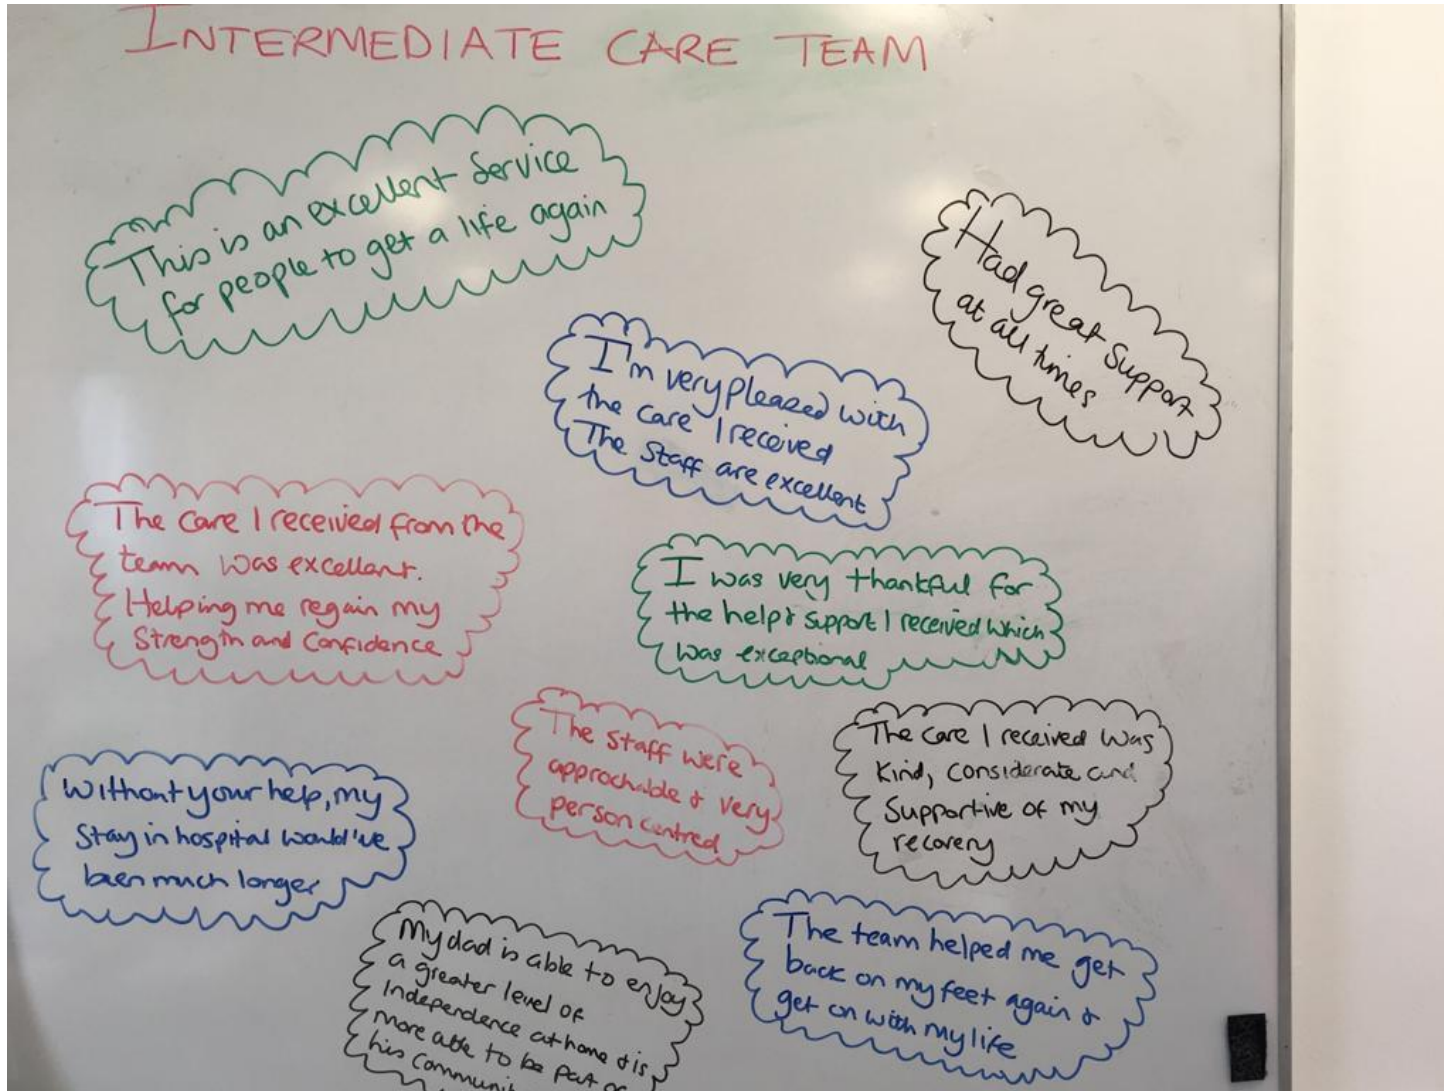 INTERMEDIATE CARE TEAM
This is an excellent Service
for people to get a life again
Had great Support
at all times
I'm very pleased with
the care I received
The Staff are excellent
The care I received from the
team was excellant.
Helping me regain my
Strength and Confidence
I was very thankful for
the help & support I received which
was exceptional
The Staff were
approchable & very
person centred
The care I received was
Kind, Considerate and
Supportive of my
recovery
Without your help, my
Stay in hospital would've
been much longer
My dad is able to enjoy
a greater level of
Independence at home & is
more able to be part of
his
The team helped me get
back on my feet again &
get on with my life